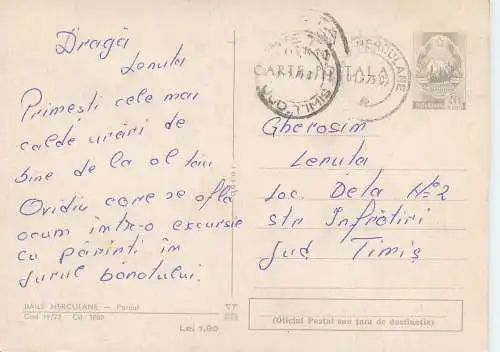 Dragă
Lenuta
Primesti cele mai
calde urări de
bine de la al tău
Ovidiu care se află
acum într-o excursie
cu părinti în
jurul banatului.
BAILE HERCULANE — Parcul
Lei 1,90
CARTA POSTALA
HERCULANE
JUD. TIMIS
Gherosim
Lenuta
Loc. Deta No 2
str Infrătiri
Jud Timiș
(Oficiul Postal sau țara de destinație)